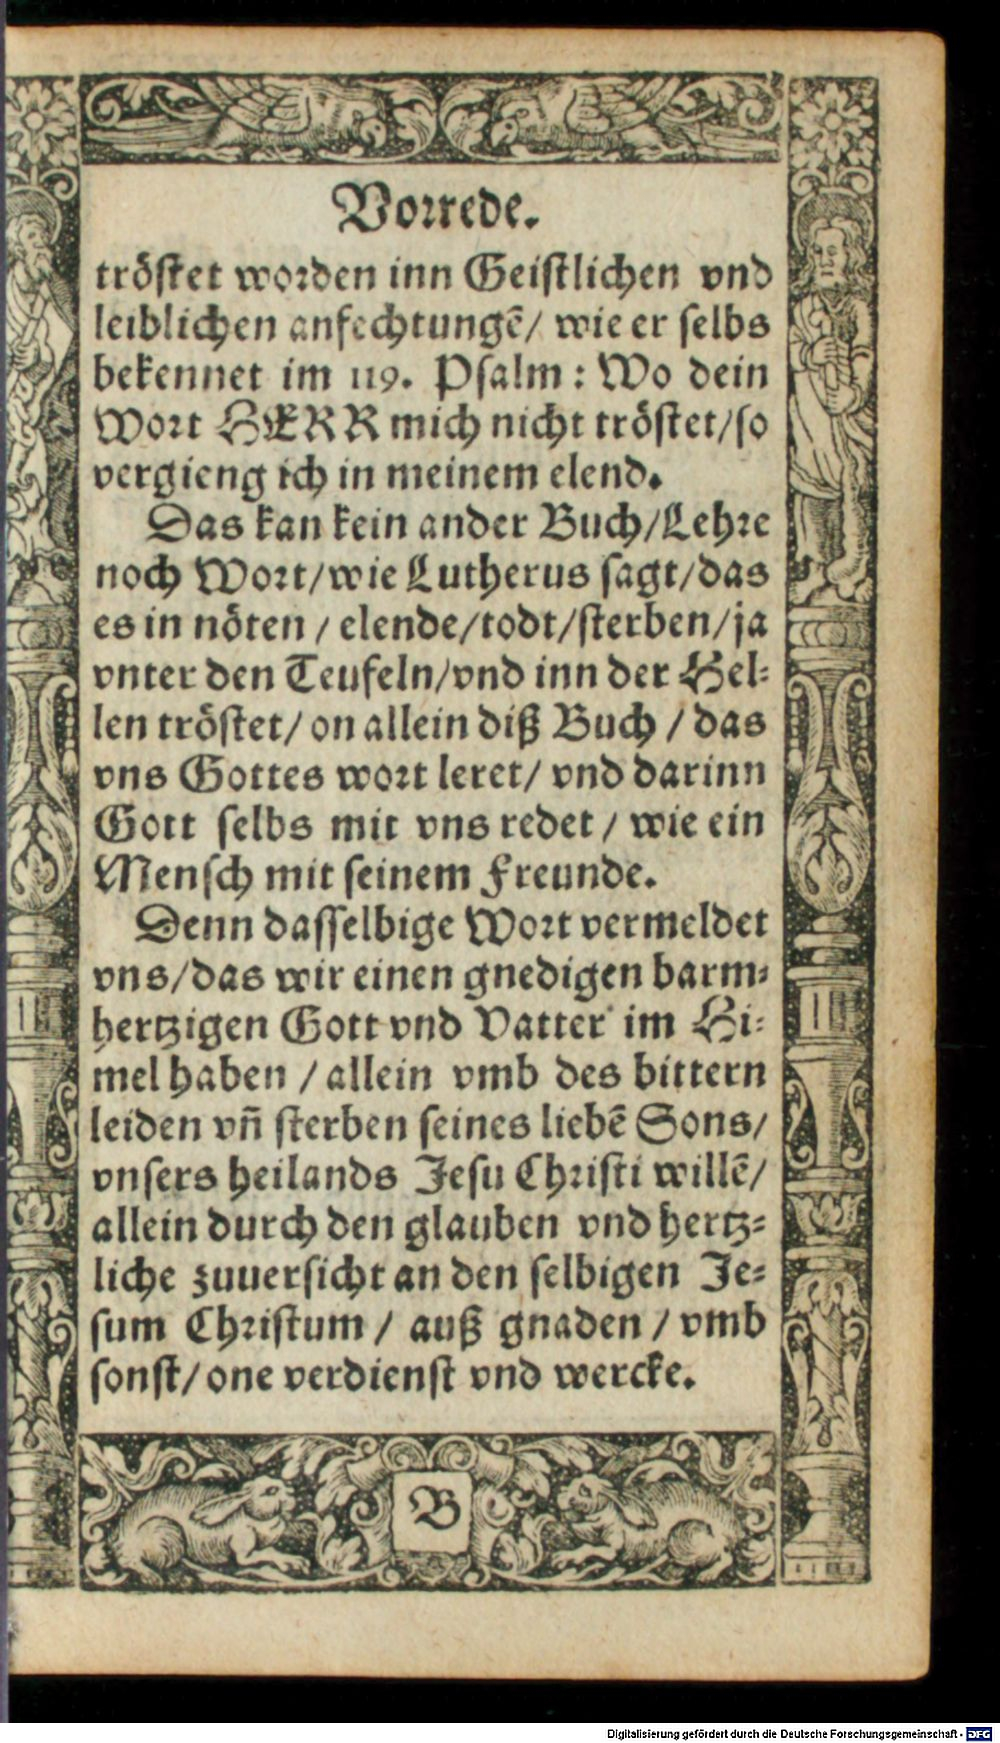 Vorrede.
tröſtet worden inn Geiſtlichen vnd
leiblichen anfechtungē/ wie er ſelbs
bekennet im 119. Pſalm: Wo dein
Wort HERR mich nicht tröſtet/ſo
vergieng ich in meinem elend.
Das kan kein ander Buch/Lehre
noch Wort/wie Lutherus ſagt/das
es in nöten / elende/todt/ſterben/ja
vnter den Teufeln/vnd inn der Hel⸗
len tröſtet/ on allein diß Buch / das
vns Gottes wort leret/ vnd darinn
Gott ſelbs mit vns redet / wie ein
Menſch mit ſeinem Freunde.
Denn daſſelbige Wort vermeldet
vns/das wir einen gnedigen barm⸗
hertzigen Gott vnd Vatter im Hi⸗
mel haben / allein vmb des bittern
leiden vñ ſterben ſeines liebē Sons/
vnſers heilands Jeſu Chriſti willē/
allein durch den glauben vnd hertz⸗
liche zuuerſicht an den ſelbigen Je⸗
ſum Chriſtum / auß gnaden / vmb
ſonſt/ one verdienſt vnd wercke.
B
Digitalisierung gefördert durch die Deutsche Forschungsgemeinschaft - DFG